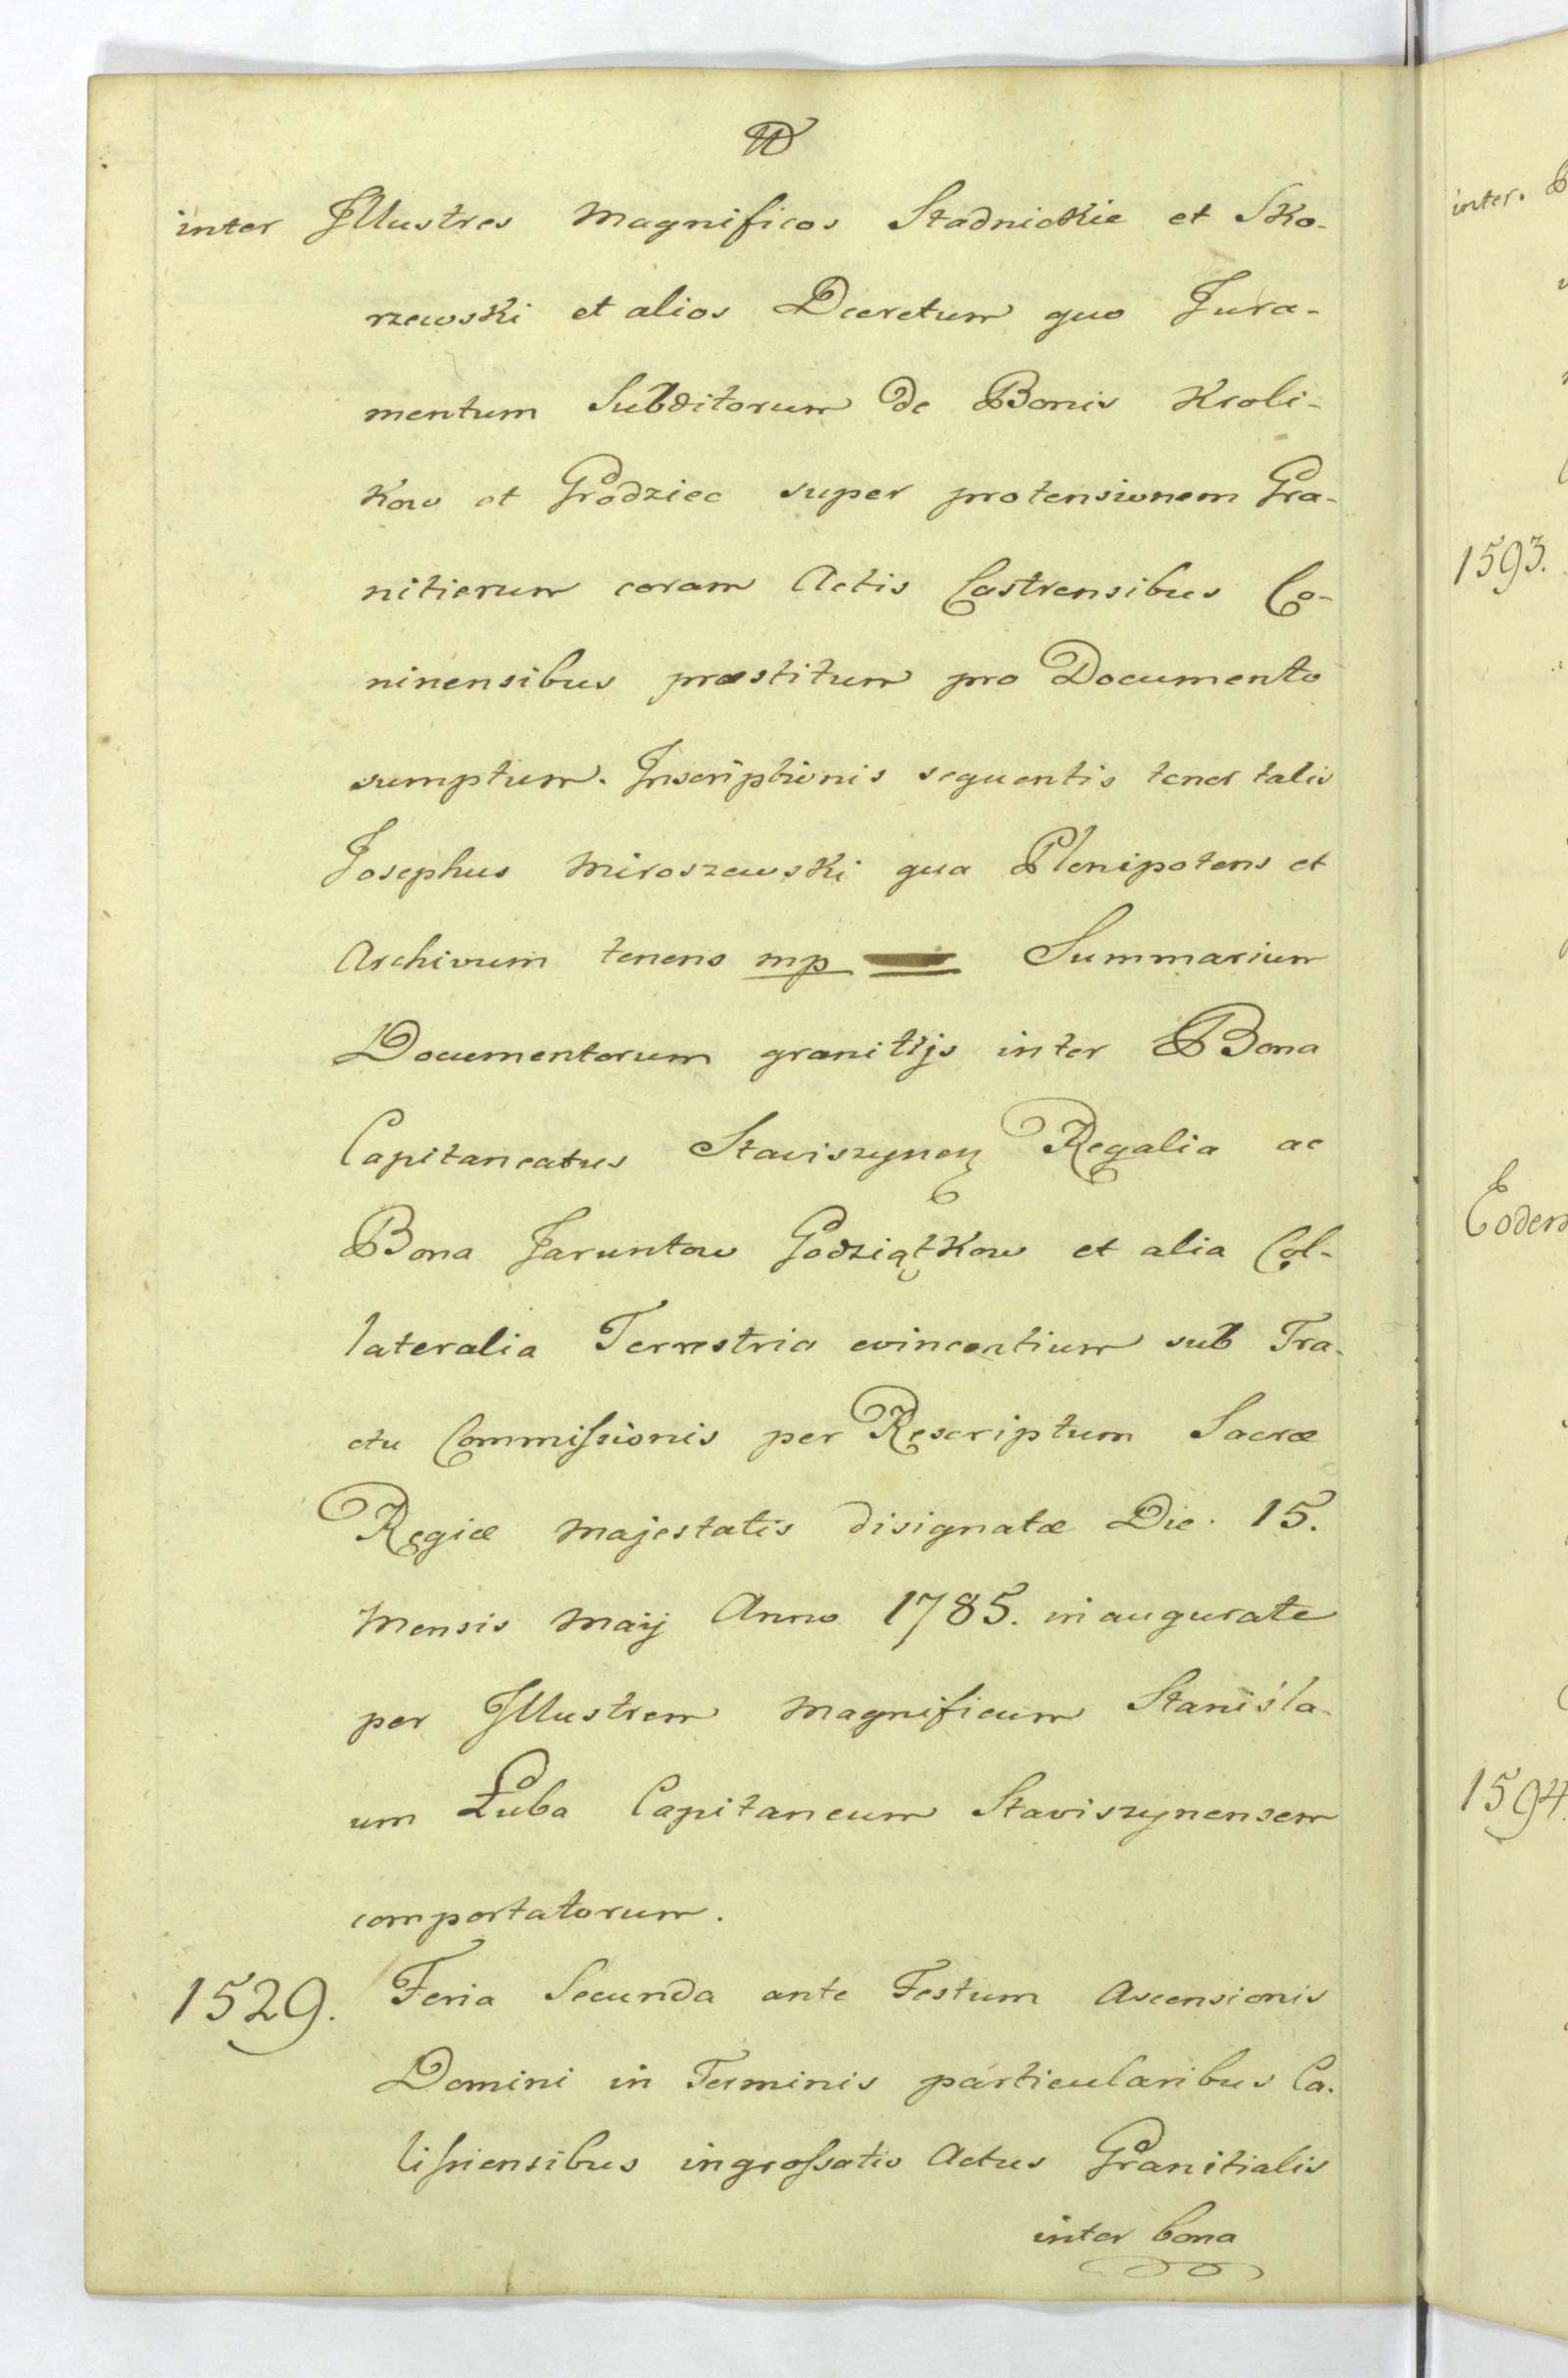 inter Illustres Magnificos Stadnickie et Sko-
rzewski et alios Decretum quo Jura-
mentum Subditorum de Bonis Kroli-
kow et Grodziec super protensionem Gra-
nitierum coram Actis Castrensibus Co-
ninensibus præstitum pro Documento
sumptum. Inscriptionis sequentis tenor talis
Josephus Miroszewski qua Plenipotens et
Archivum tenens mp Summarium
Documentorum granitijs inter Bona
Capitaneatus Staviszynen Regalia ac
Bona Jaruntow Godziątkow et alia Col-
lateralia Terrestria evincentium sub Tra-
ctu Commissionis per Rescriptum Sacræ
Regiæ Majestatis disignatæ Die. 15.
Mensis Maij Anno 1785. inaugurate
per Illustrem Magnificum Stanisla-
um Łuba Capitaneum Staviszynensem
comportatorum.
1529. Feria Secunda ante Festum Ascensionis
Domini in Terminis particularibus Ca-
lissiensibus ingrossatis Actus Granitialis
inter bona
inter.
1593.
Eodem
1594.